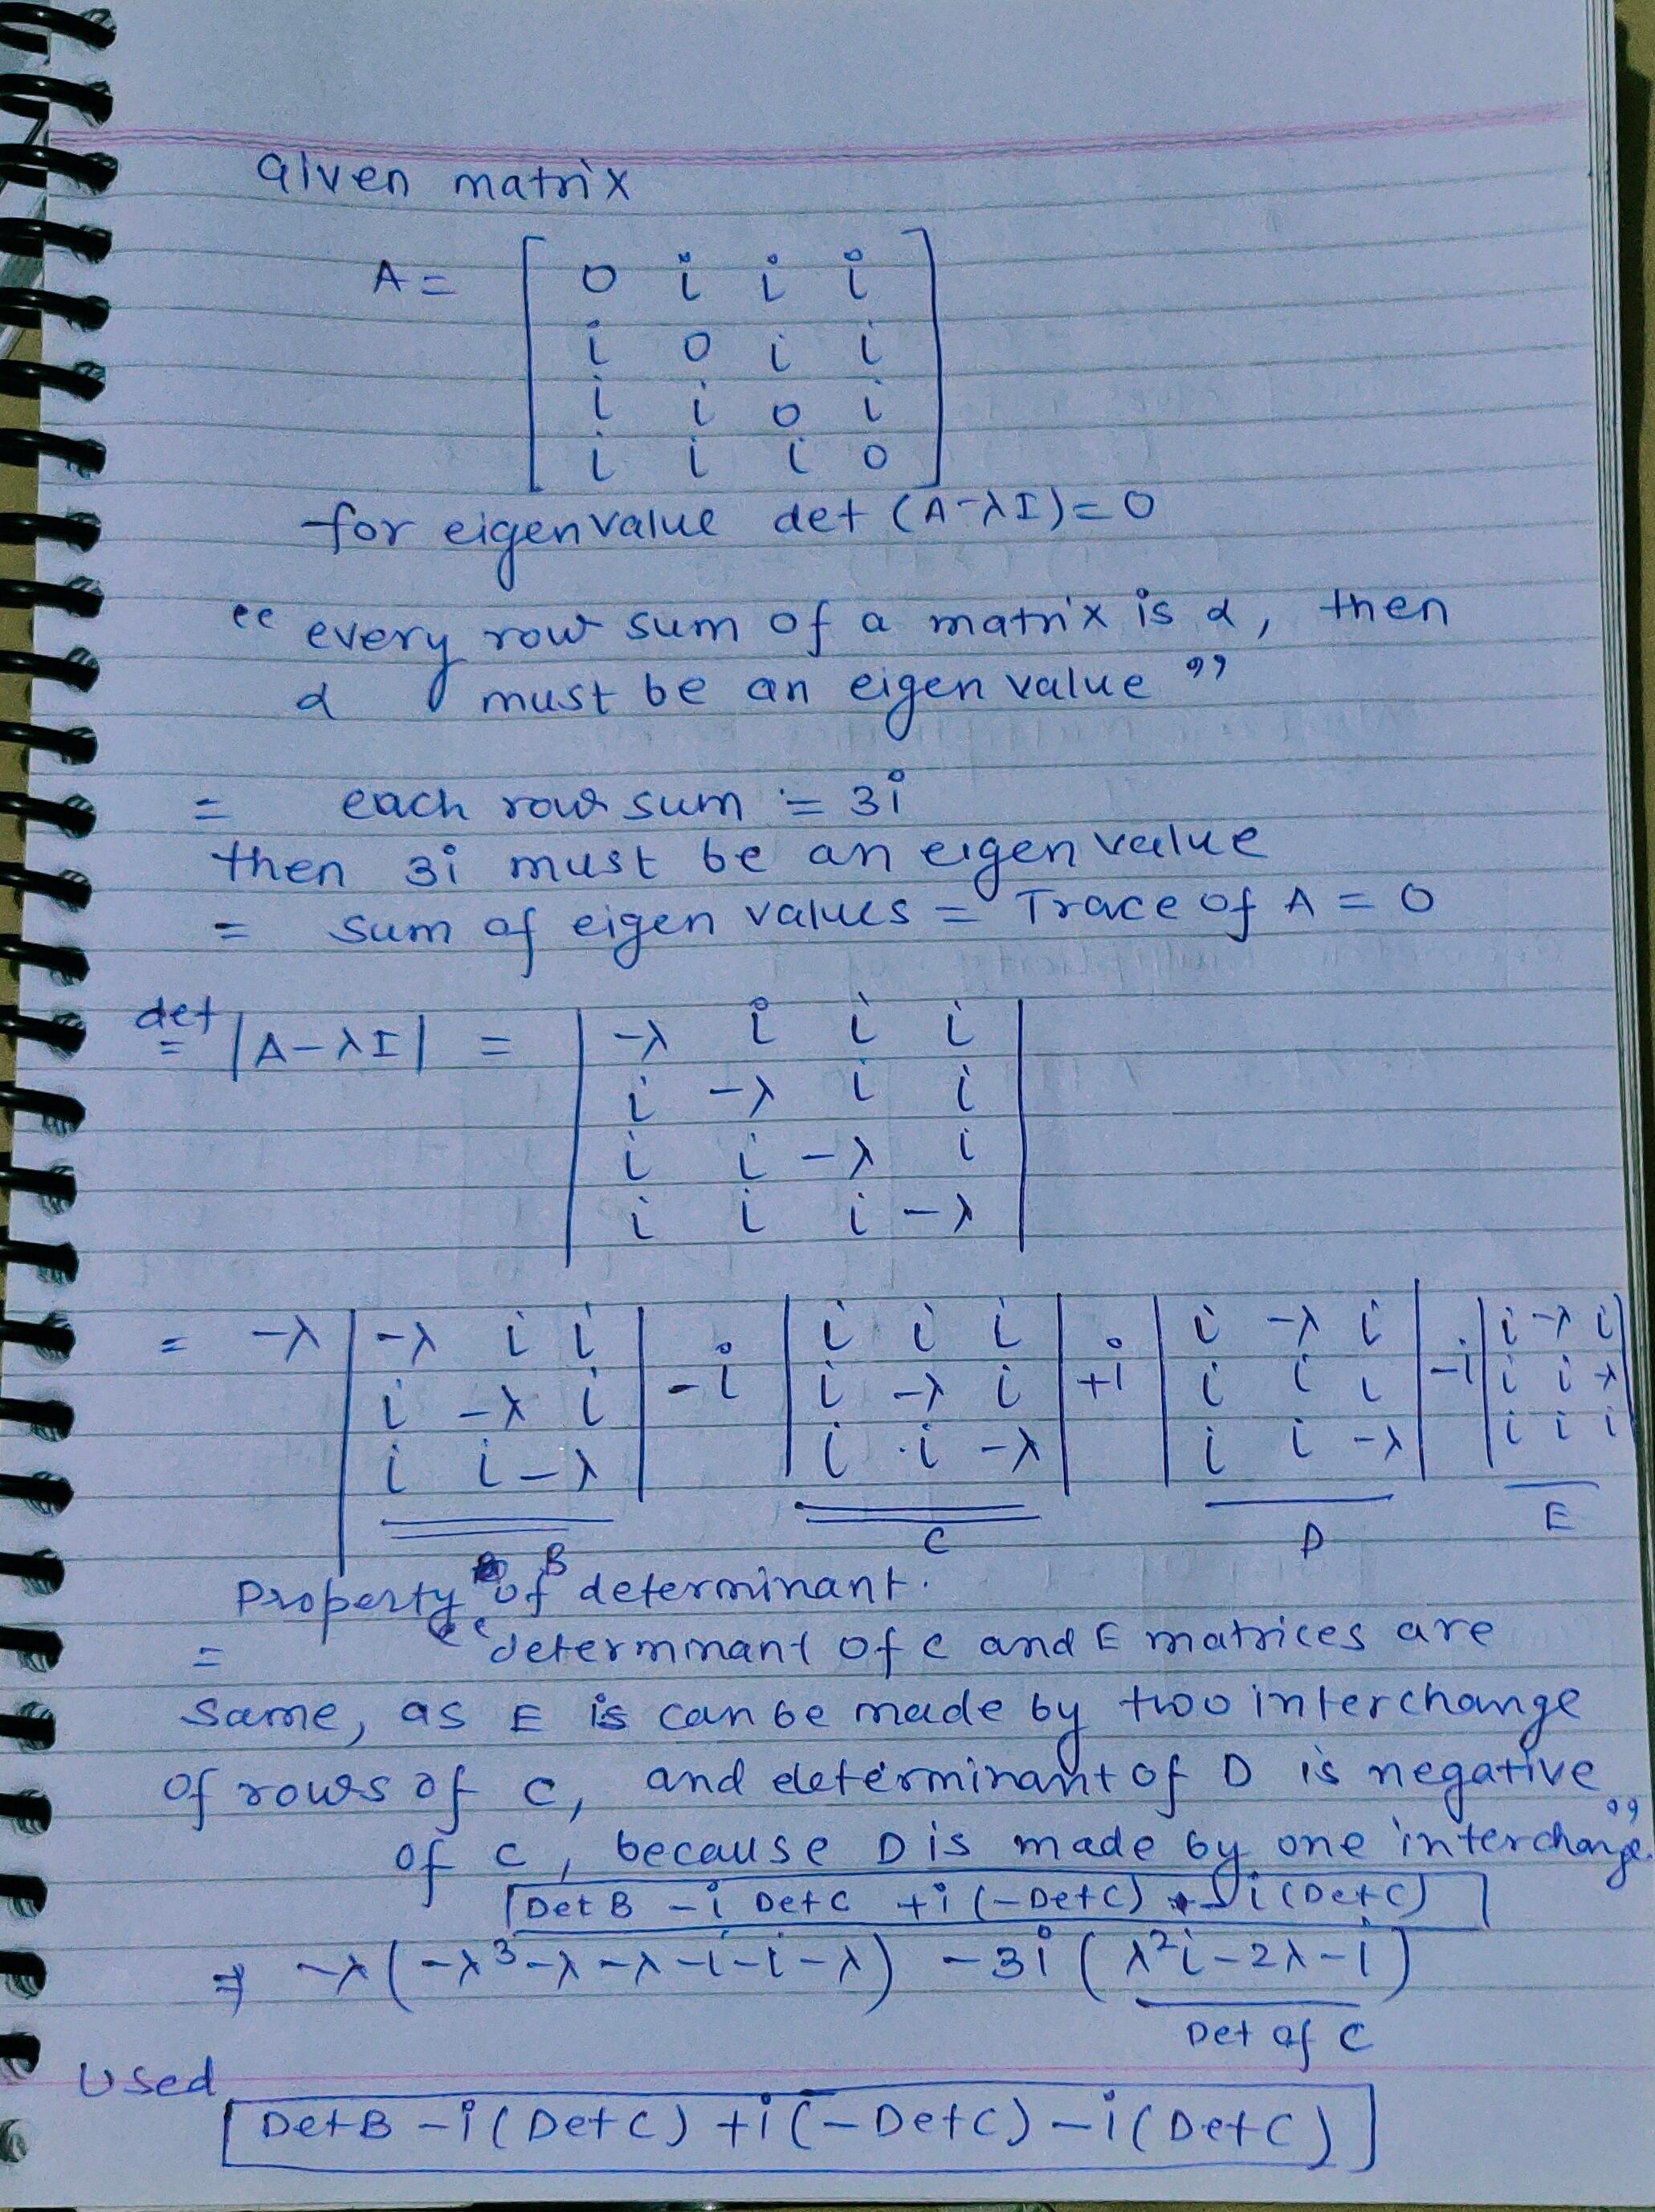 Given matrix
A = [ 0 i i i
i 0 i i
i i 0 i
i i i 0 ]
for eigenvalue det (A-λI)=0
“ every row sum of a matrix is α, then
α must be an eigen value ”
= each row sum = 3i
then 3i must be an eigen value
= sum of eigen values = Trace of A = 0
det
= |A-λI| = | -λ i i i
i -λ i i
i i -λ i
i i i -λ |
= -λ | -λ i i | -i | i i i | +i | i -λ i | -i | i -λ i |
| i -λ i | | i -λ i | | i i i | | i i -λ |
| i i -λ | | i i -λ | | i i -λ | | i i i |
B C D E
Property of determinant.
= “determinant of C and E matrices are
same, as E is can be made by two interchange
of rows of C, and determinant of D is negative
of C, because D is made by one interchange.”
[Det B - i Det C + i (-Det C) - i (Det C)]
⇒ -λ(-λ³-λ-λ-i-i-λ) -3i (λ²i-2λ-i)
Det of C
Used
[Det B - i (Det C) + i (-Det C) - i (Det C)]